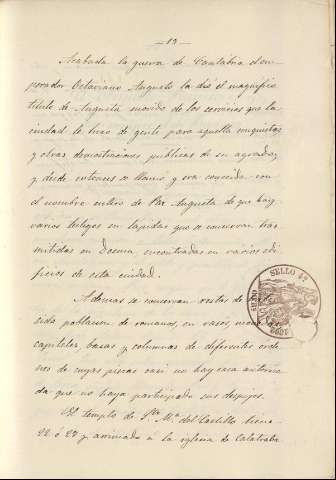 — 12 —
Acabada la guerra de Cantabria el em-
perador Octaviano Augusto la dió el magnífico
título de Augusta movido de los servicios que la
ciudad le hizo de gente para aquella
y otras demostraciones publicas de su agrado,
y desde entonces se llamó y era conocida con
el nombre entero de Pax Augusta de que hay
varios testigos en lapidas que se conservan
en encontradas en varios edi-
ficios de esta ciudad.
Además se conservan restos de
poblacion de romanos, en vasos,
capiteles, basas y columnas de diferentes orde-
nes de cuyas piezas casi no hay casa anterior
da que no haya participado sus despojos.
El templo de Sta. Ma. del Castillo tiene
22 ó 23 y arrimado á la iglesia de Calatraba
SELLO 4º